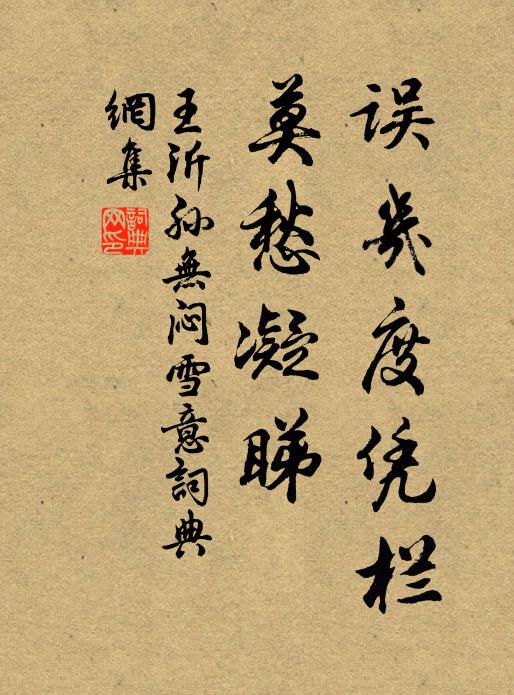 误几度凭栏
莫愁凝睇
王沂孙無闷雪意詞典
網集
詞典
网印